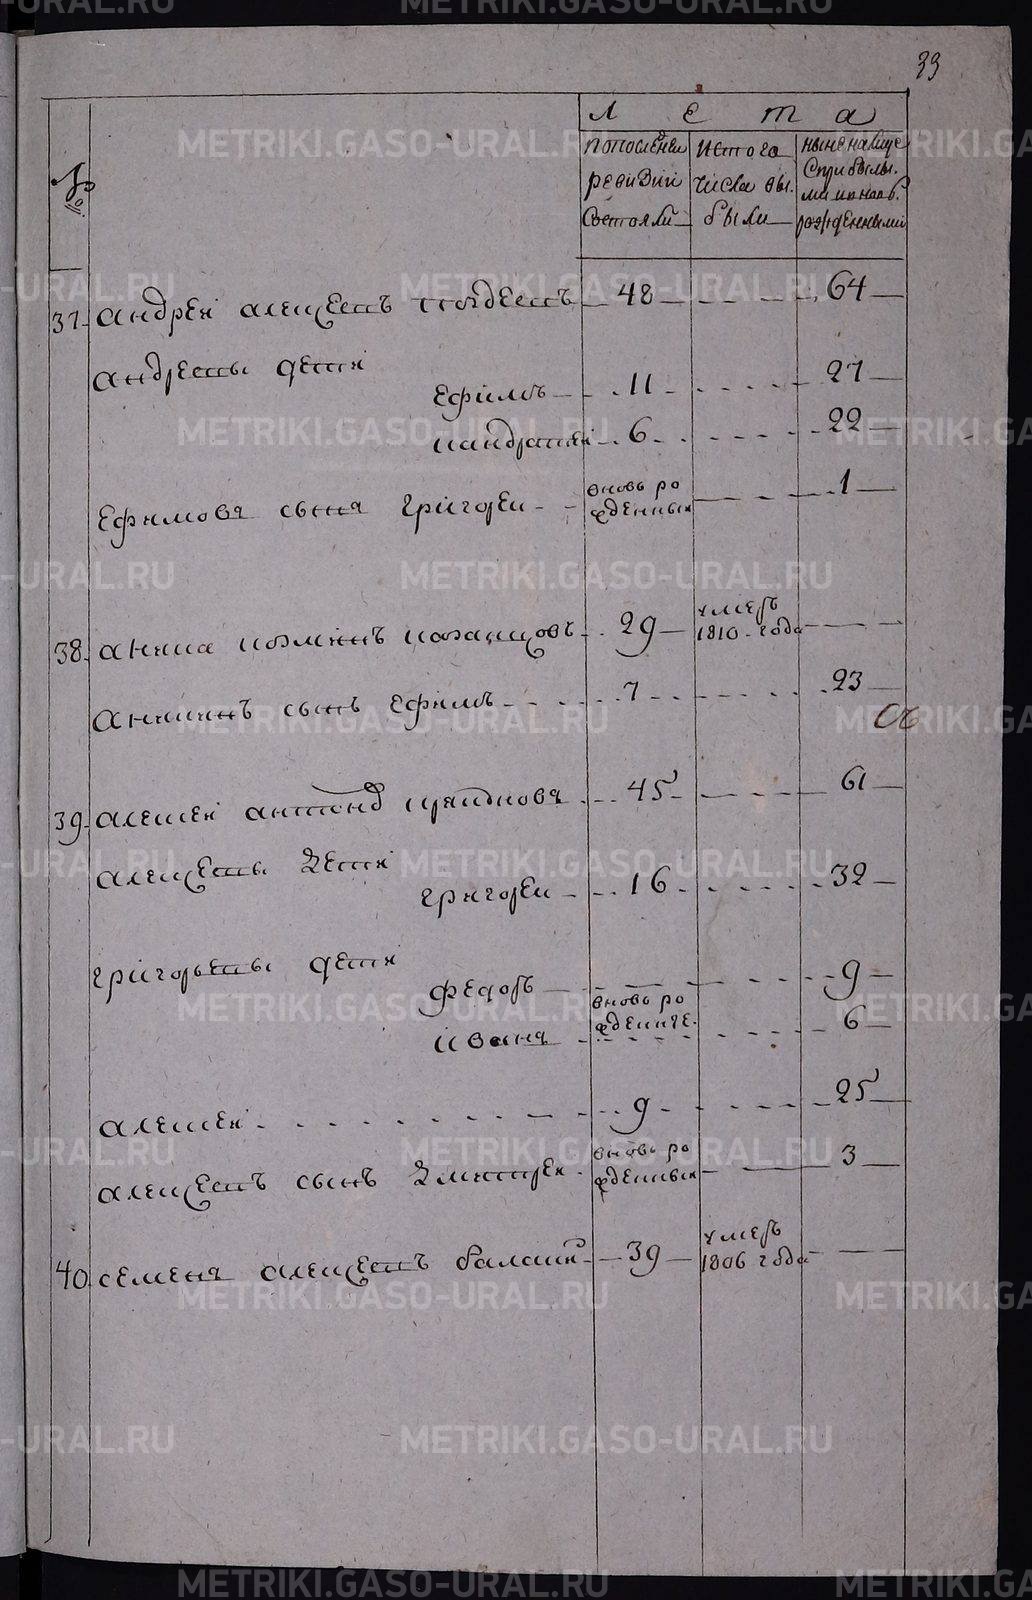 33
Лета
№
По последней ревизии состояли
Из того числа выбыли
Ныне на лице с прибылыми и новорожденными
37 Андрей Алексеевъ 48 64
Андреевы дети
Ефимъ 11 27
Кандратей 6 22
Ефимовъ сынъ Григореи вновь рожденный 1
38 Аника Козминъ Казанцовъ 29 умеръ 1810 года
Аникинъ сынъ Ефимъ 7 23
39 Алексей Антоно 45 61
Алексеевы дети
Григореи 16 32
Григорьевы дети
Федоръ 9
вновь рожденные
Иванъ 6
Алексей 9 25
Алексеевъ сынъ Дмитрей вновь рожденный 3
40 Семенъ Алексеевъ Балакин 39 умеръ 1806 года
METRIKI.GASO-URAL.RU